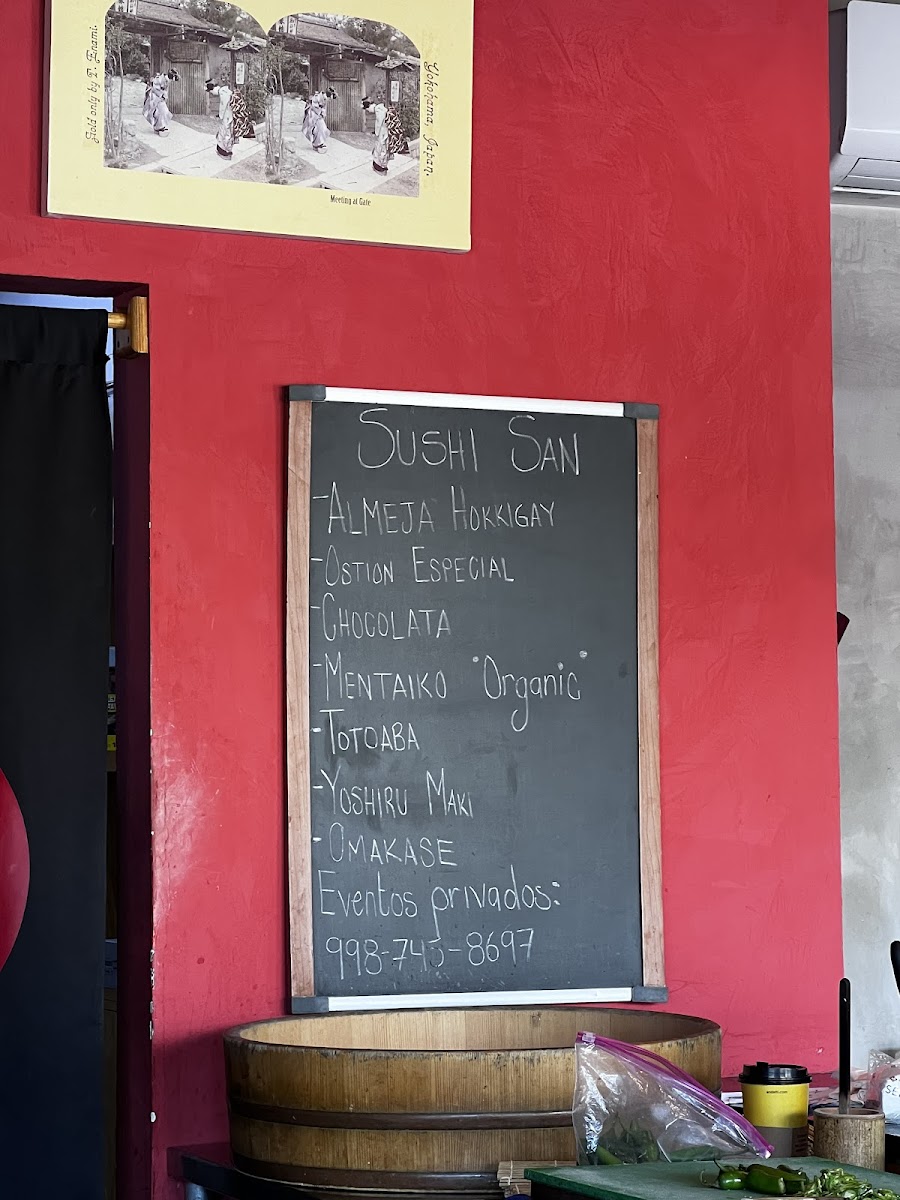 Sold only by T. Enami.
Yokohama, Japan.
Meeting at Gate
SUSHI SAN
-ALMEJA HOKKIGAY
-OSTION ESPECIAL
-CHOCOLATA
-MENTAIKO "Organic"
-TOTOABA
-YOSHIRU MAKI
-OMAKASE
Eventos privados:
998-745-8697